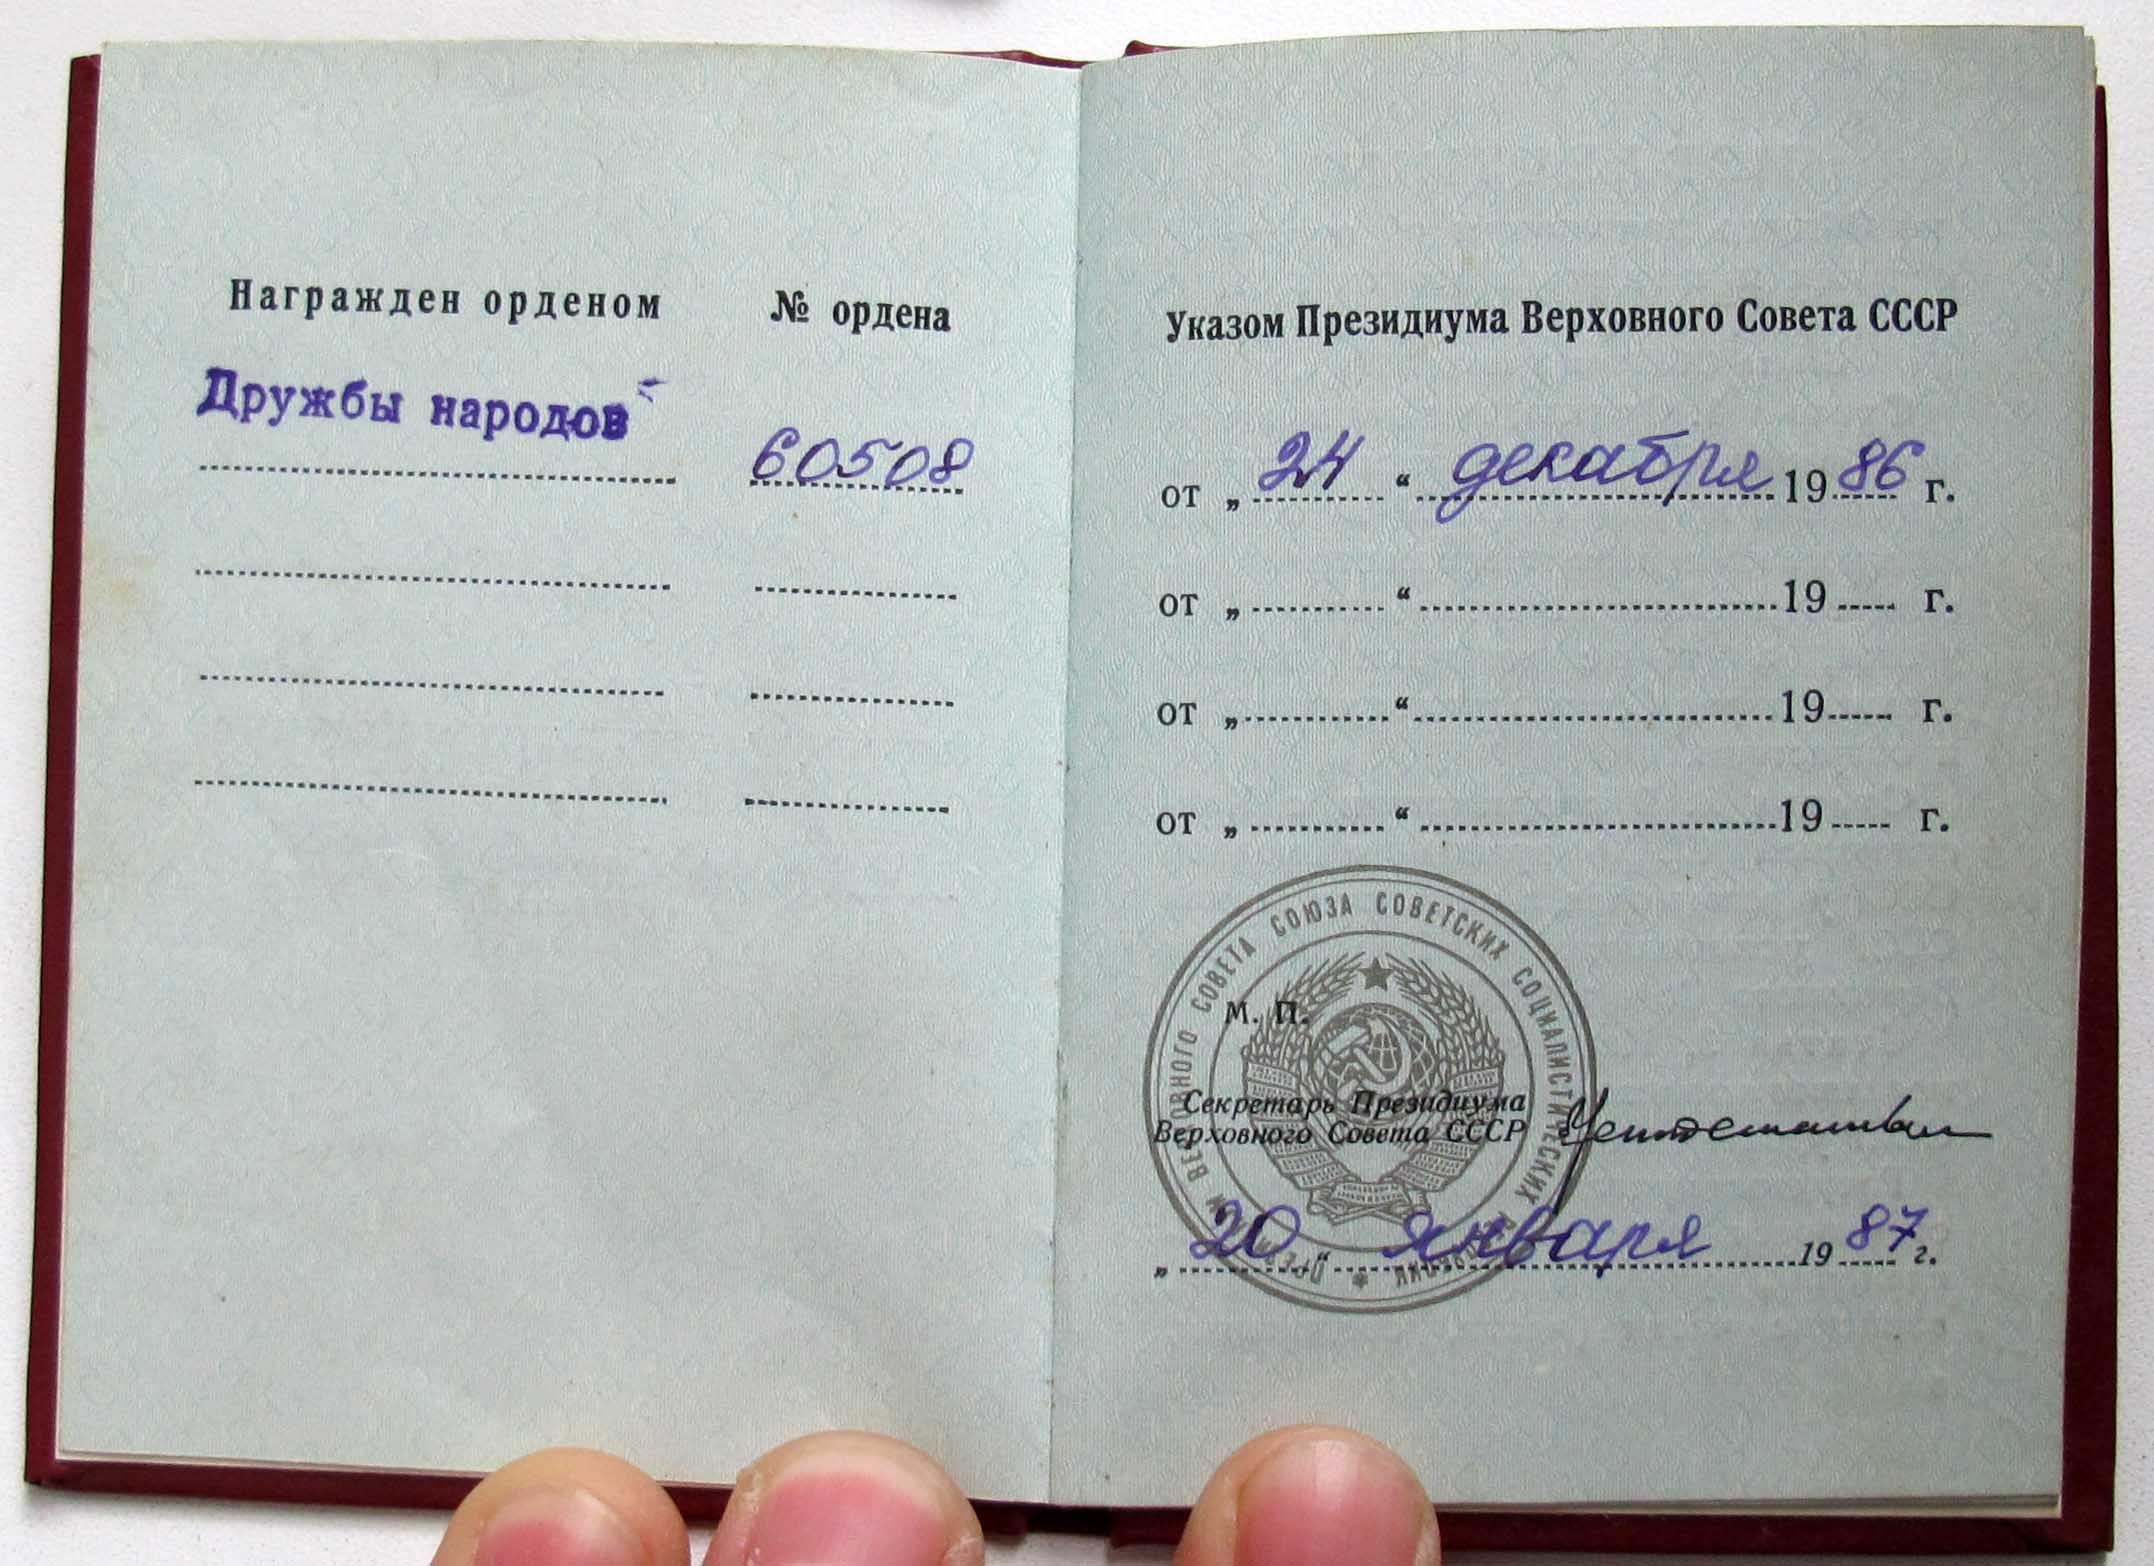 Награжден орденом
№ ордена
Дружбы народов
60508
Указом Президиума Верховного Совета СССР
от „ 24 “ декабря 19 86 г.
от „ “ 19 г.
от „ “ 19 г.
от „ “ 19 г.
СОВЕТА СОЮЗА СОВЕТСКИХ СОЦИАЛИСТИЧЕСКИХ
М. П.
Секретарь Президиума
Верховного Совета СССР
„ 20 “ января 19 87 г.